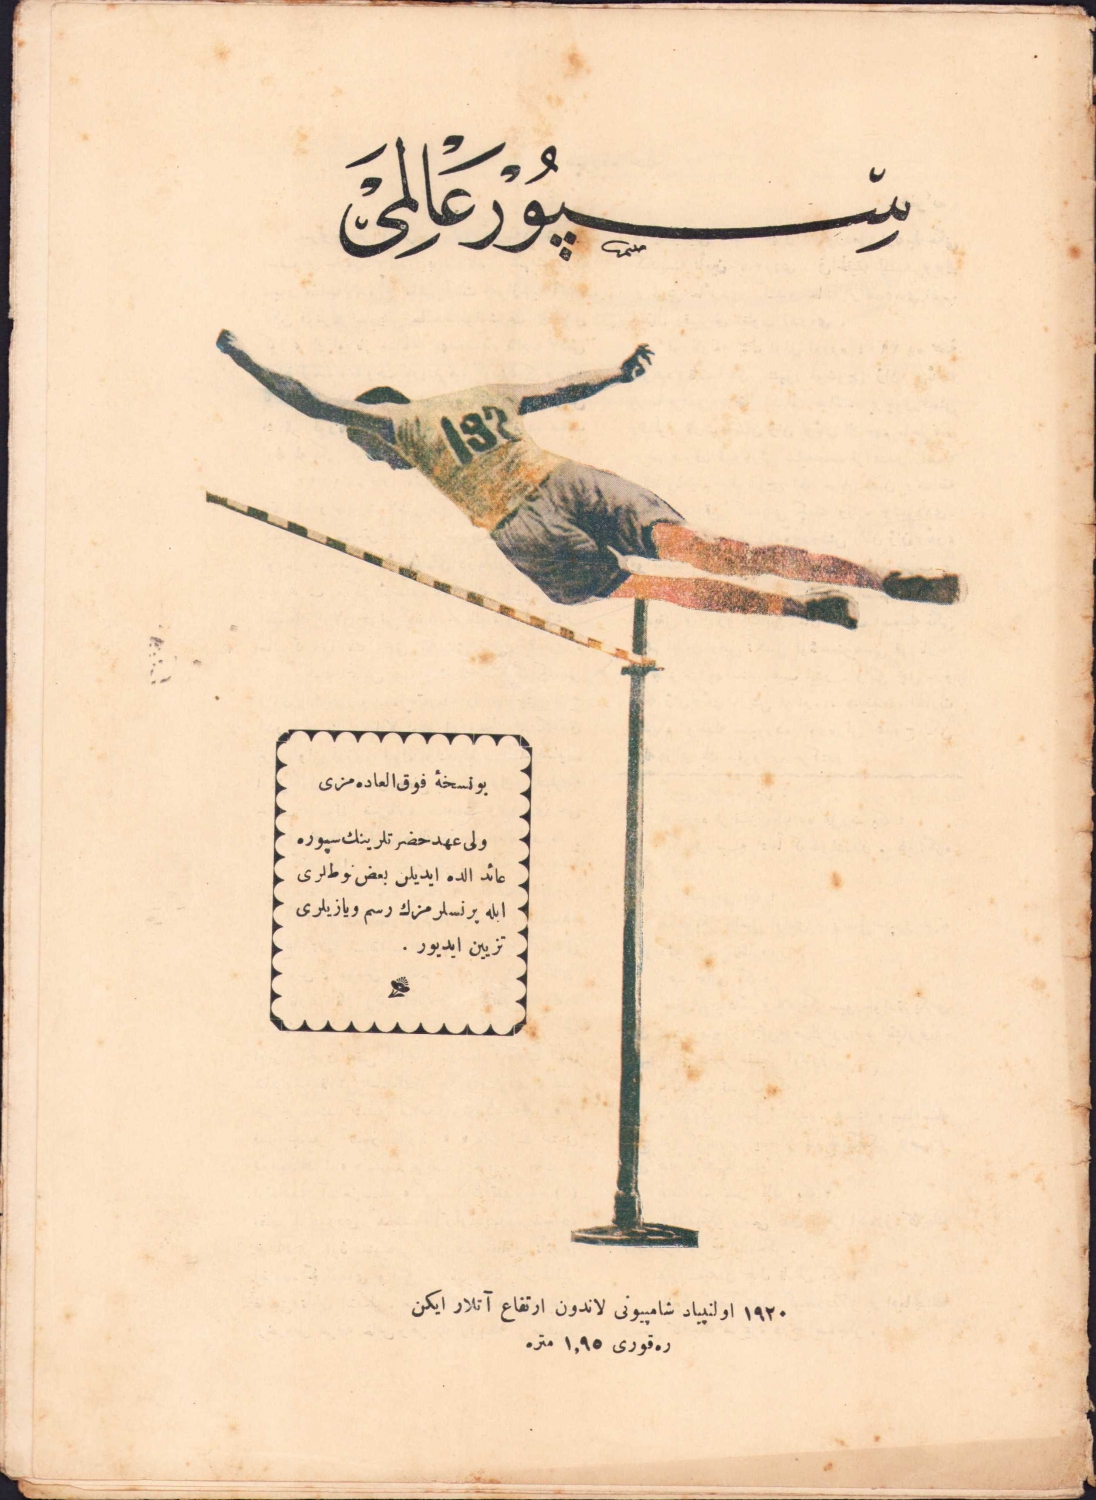 سپور عالمی
132
بو نسخۀ فوق العاده مزی
ولی عهد حضرتلرینك سپوره
عائد الده ایدیلن بعض نوطلری
ایله پرنسلرمزك رسم ویازیلری
تزیین ایدیور .
۱۹۲۰ اولنپیاد شامپیونی لاندون ارتفاع آتلار ایكن
ره‌قوری ۱,۹۵ متره